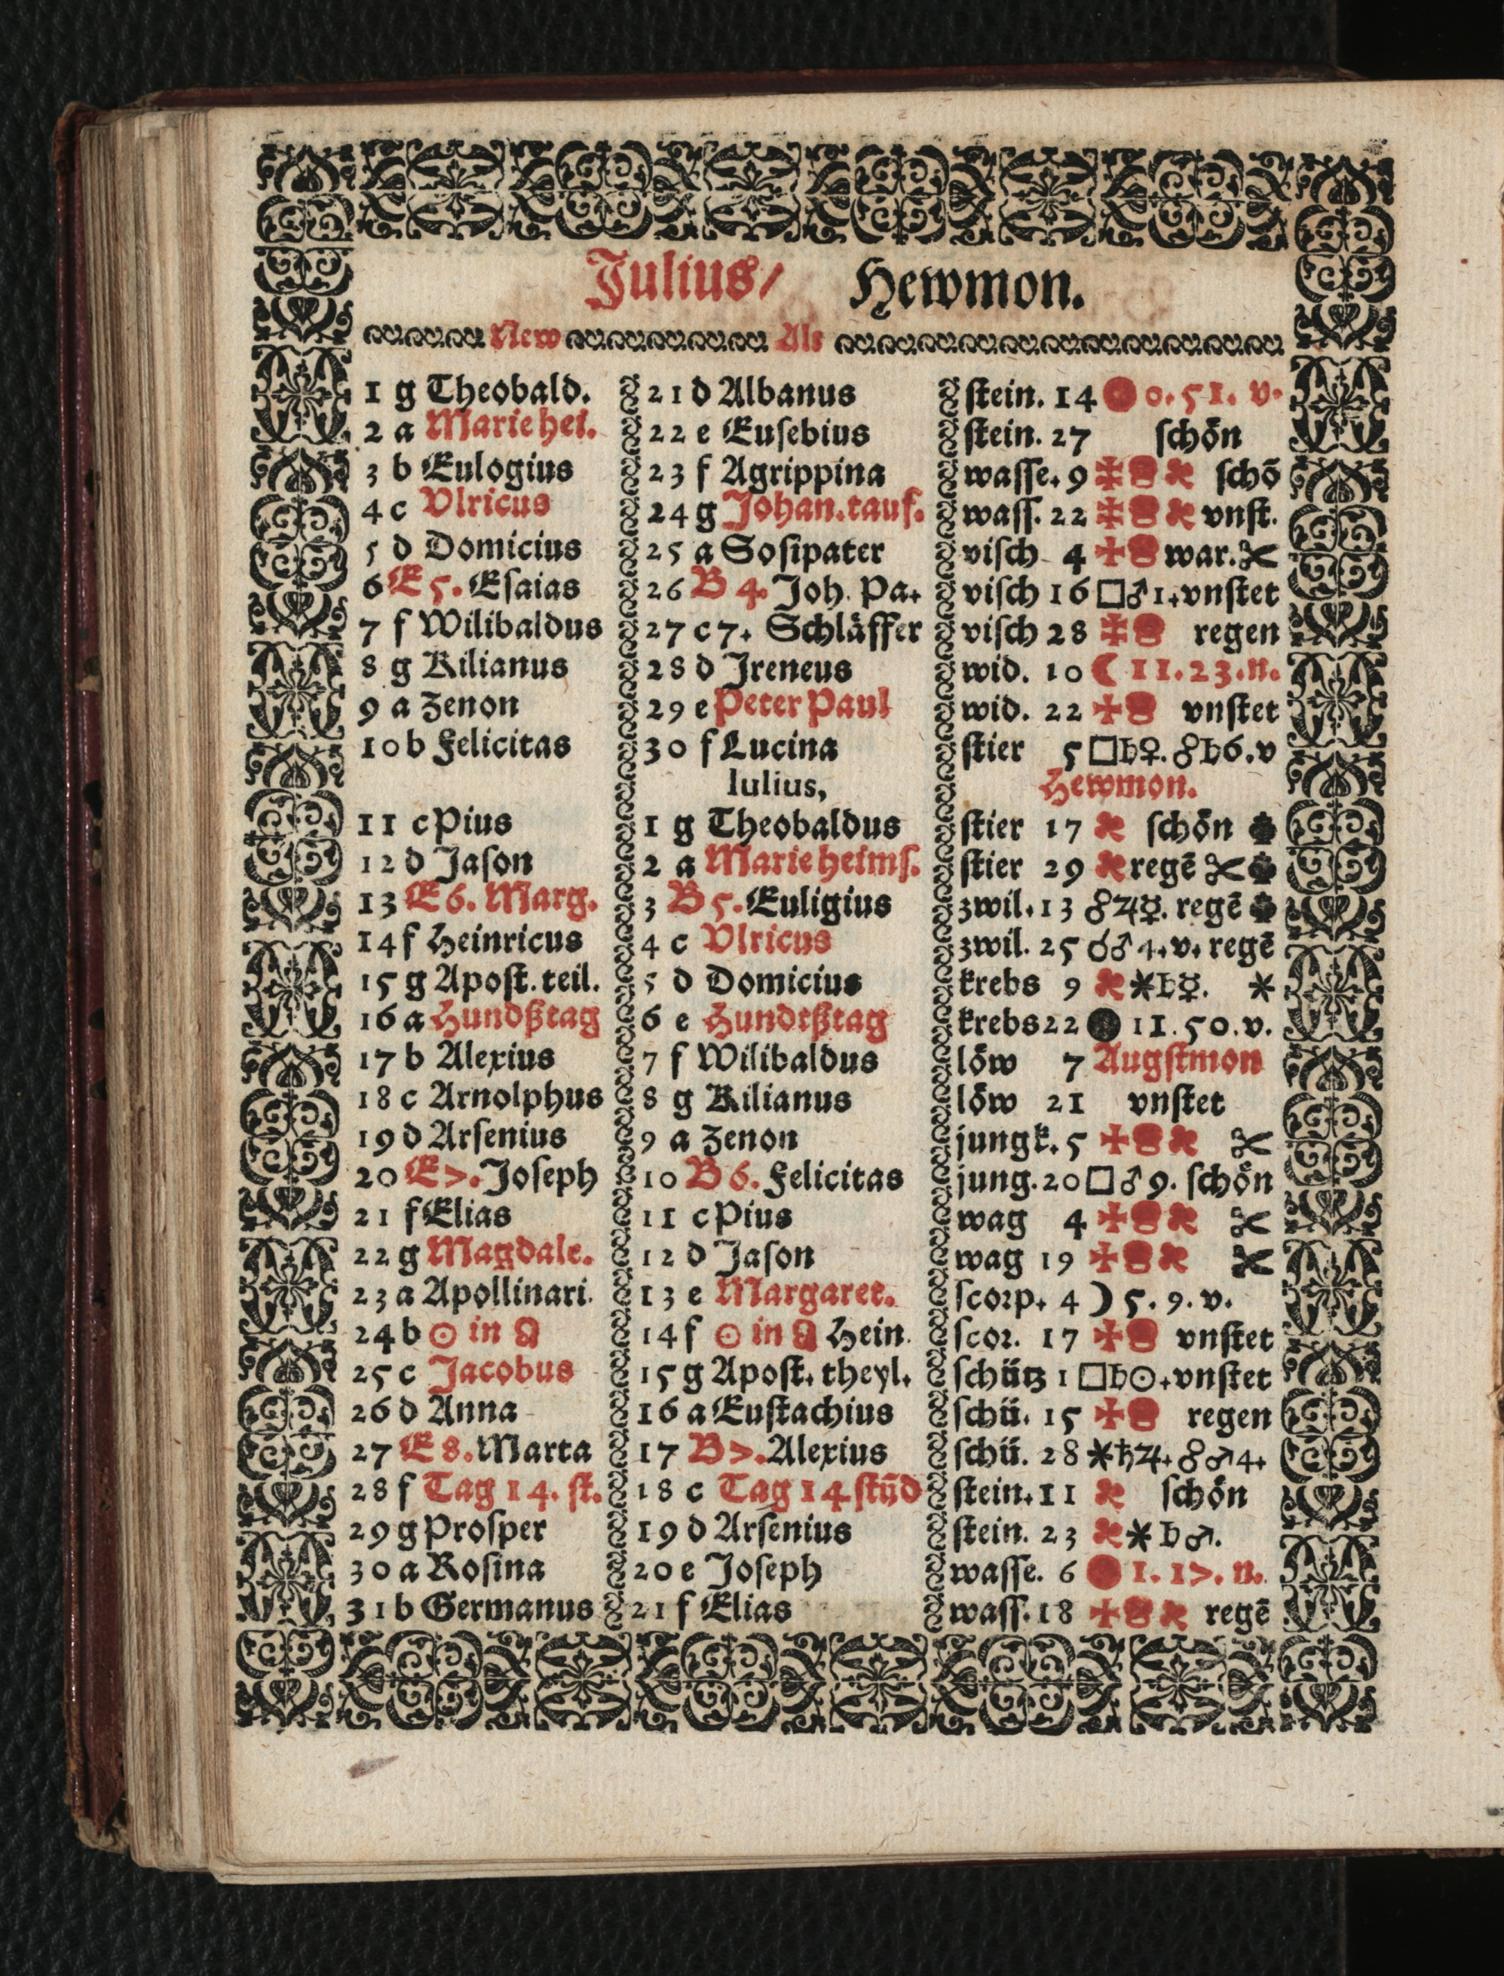 Julius/ Hewmon.
New Alt
1 g Theobald. 21 d Albanus stein. 14 0. 51. v.
2 a Marie hei. 22 e Eusebius stein. 27 schön
3 b Eulogius 23 f Agrippina wasse. 9 schō
4 c Vlricus 24 g Johan. tauf. wass. 22 vnst.
5 d Domicius 25 a Sosipater visch 4 war.
6 E 5. Esaias 26 B 4. Joh. Pa. visch 16 □♂ 1. vnstet
7 f Wilibaldus 27 c 7. Schläffer visch 28 regen
8 g Kilianus 28 d Jreneus wid. 10 ☾ 11. 23. n.
9 a Zenon 29 e Peter Paul wid. 22 vnstet
10 b Felicitas 30 f Lucina stier 5 □♄♀. ☍♄ 6. v
Iulius, Hewmon.
11 c Pius 1 g Theobaldus stier 17 schön
12 d Jason 2 a Marie heims. stier 29 regē
13 E 6. Marg. 3 B 5. Euligius zwil. 13 ☍♃☿. regē
14 f Heinricus 4 c Vlricus zwil. 25 ☌♂ 4. v. regē
15 g Apost. teil. 5 d Domicius krebs 9 ✶♄☿. ✶
16 a Hundßtag 6 e Hundtßtag krebs 22 11. 50. v.
17 b Alexius 7 f Wilibaldus löw 7 Augstmon
18 c Arnolphus 8 g Kilianus löw 21 vnstet
19 d Arsenius 9 a Zenon jungk. 5
20 E >. Joseph 10 B 6. Felicitas jung. 20 □♂ 9. schön
21 f Elias 11 c Pius wag 4
22 g Magdale. 12 d Jason wag 19
23 a Apollinari. 13 e Margaret. scorp. 4 ☽ 5. 9. v.
24 b ☉ in ♌ 14 f ☉ in ♌ Hein. scor. 17 vnstet
25 c Jacobus 15 g Apost. theyl. schütz 1 □♄☉. vnstet
26 d Anna 16 a Eustachius schü. 15 regen
27 E 8. Marta 17 B >. Alexius schü. 28 ✶♄♃. ☍♂ 4.
28 f Tag 14. st. 18 c Tag 14 stūd stein. 11 schön
29 g Prosper 19 d Arsenius stein. 23 ✶♄♂.
30 a Rosina 20 e Joseph wasse. 6 1. 1>. n.
31 b Germanus 21 f Elias wass. 18 regē